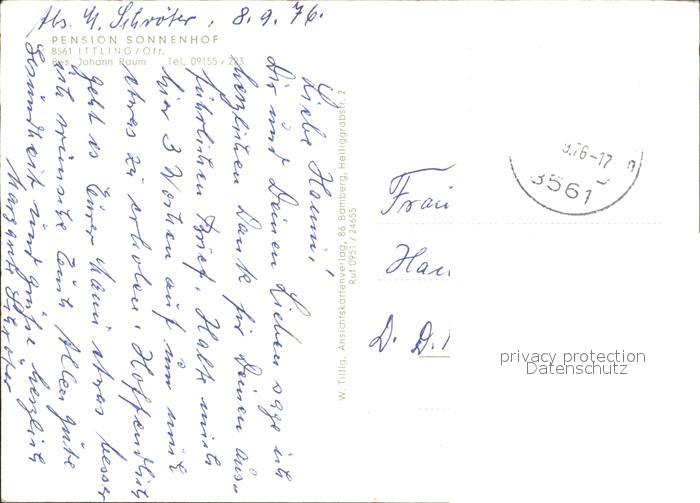 Abs. M. Schröter, 8.9.76.
PENSION SONNENHOF
8561 ITTLING/Ofr.
Bes. Johann Raum Tel. 09155/223
Liebe Hanni,
Dir und Deinen Lieben sage ich
herzlichen Dank für Deinen aus-
führlichen Brief. Halte mich
hier 3 Wochen auf um mich
etwas zu erholen. Hoffentlich
geht es Eurer Mami etwas besser
ich wünsche Euch Allen gute
Gesundheit und grüße herzlich
Margang Schröter
W. Tillig, Ansichtskartenverlag, 86 Bamberg, Heiliggrabstr. 2
Ruf 0951 / 24655
9.76-17
8561
Frau
Han
D. D.
privacy protection
Datenschutz